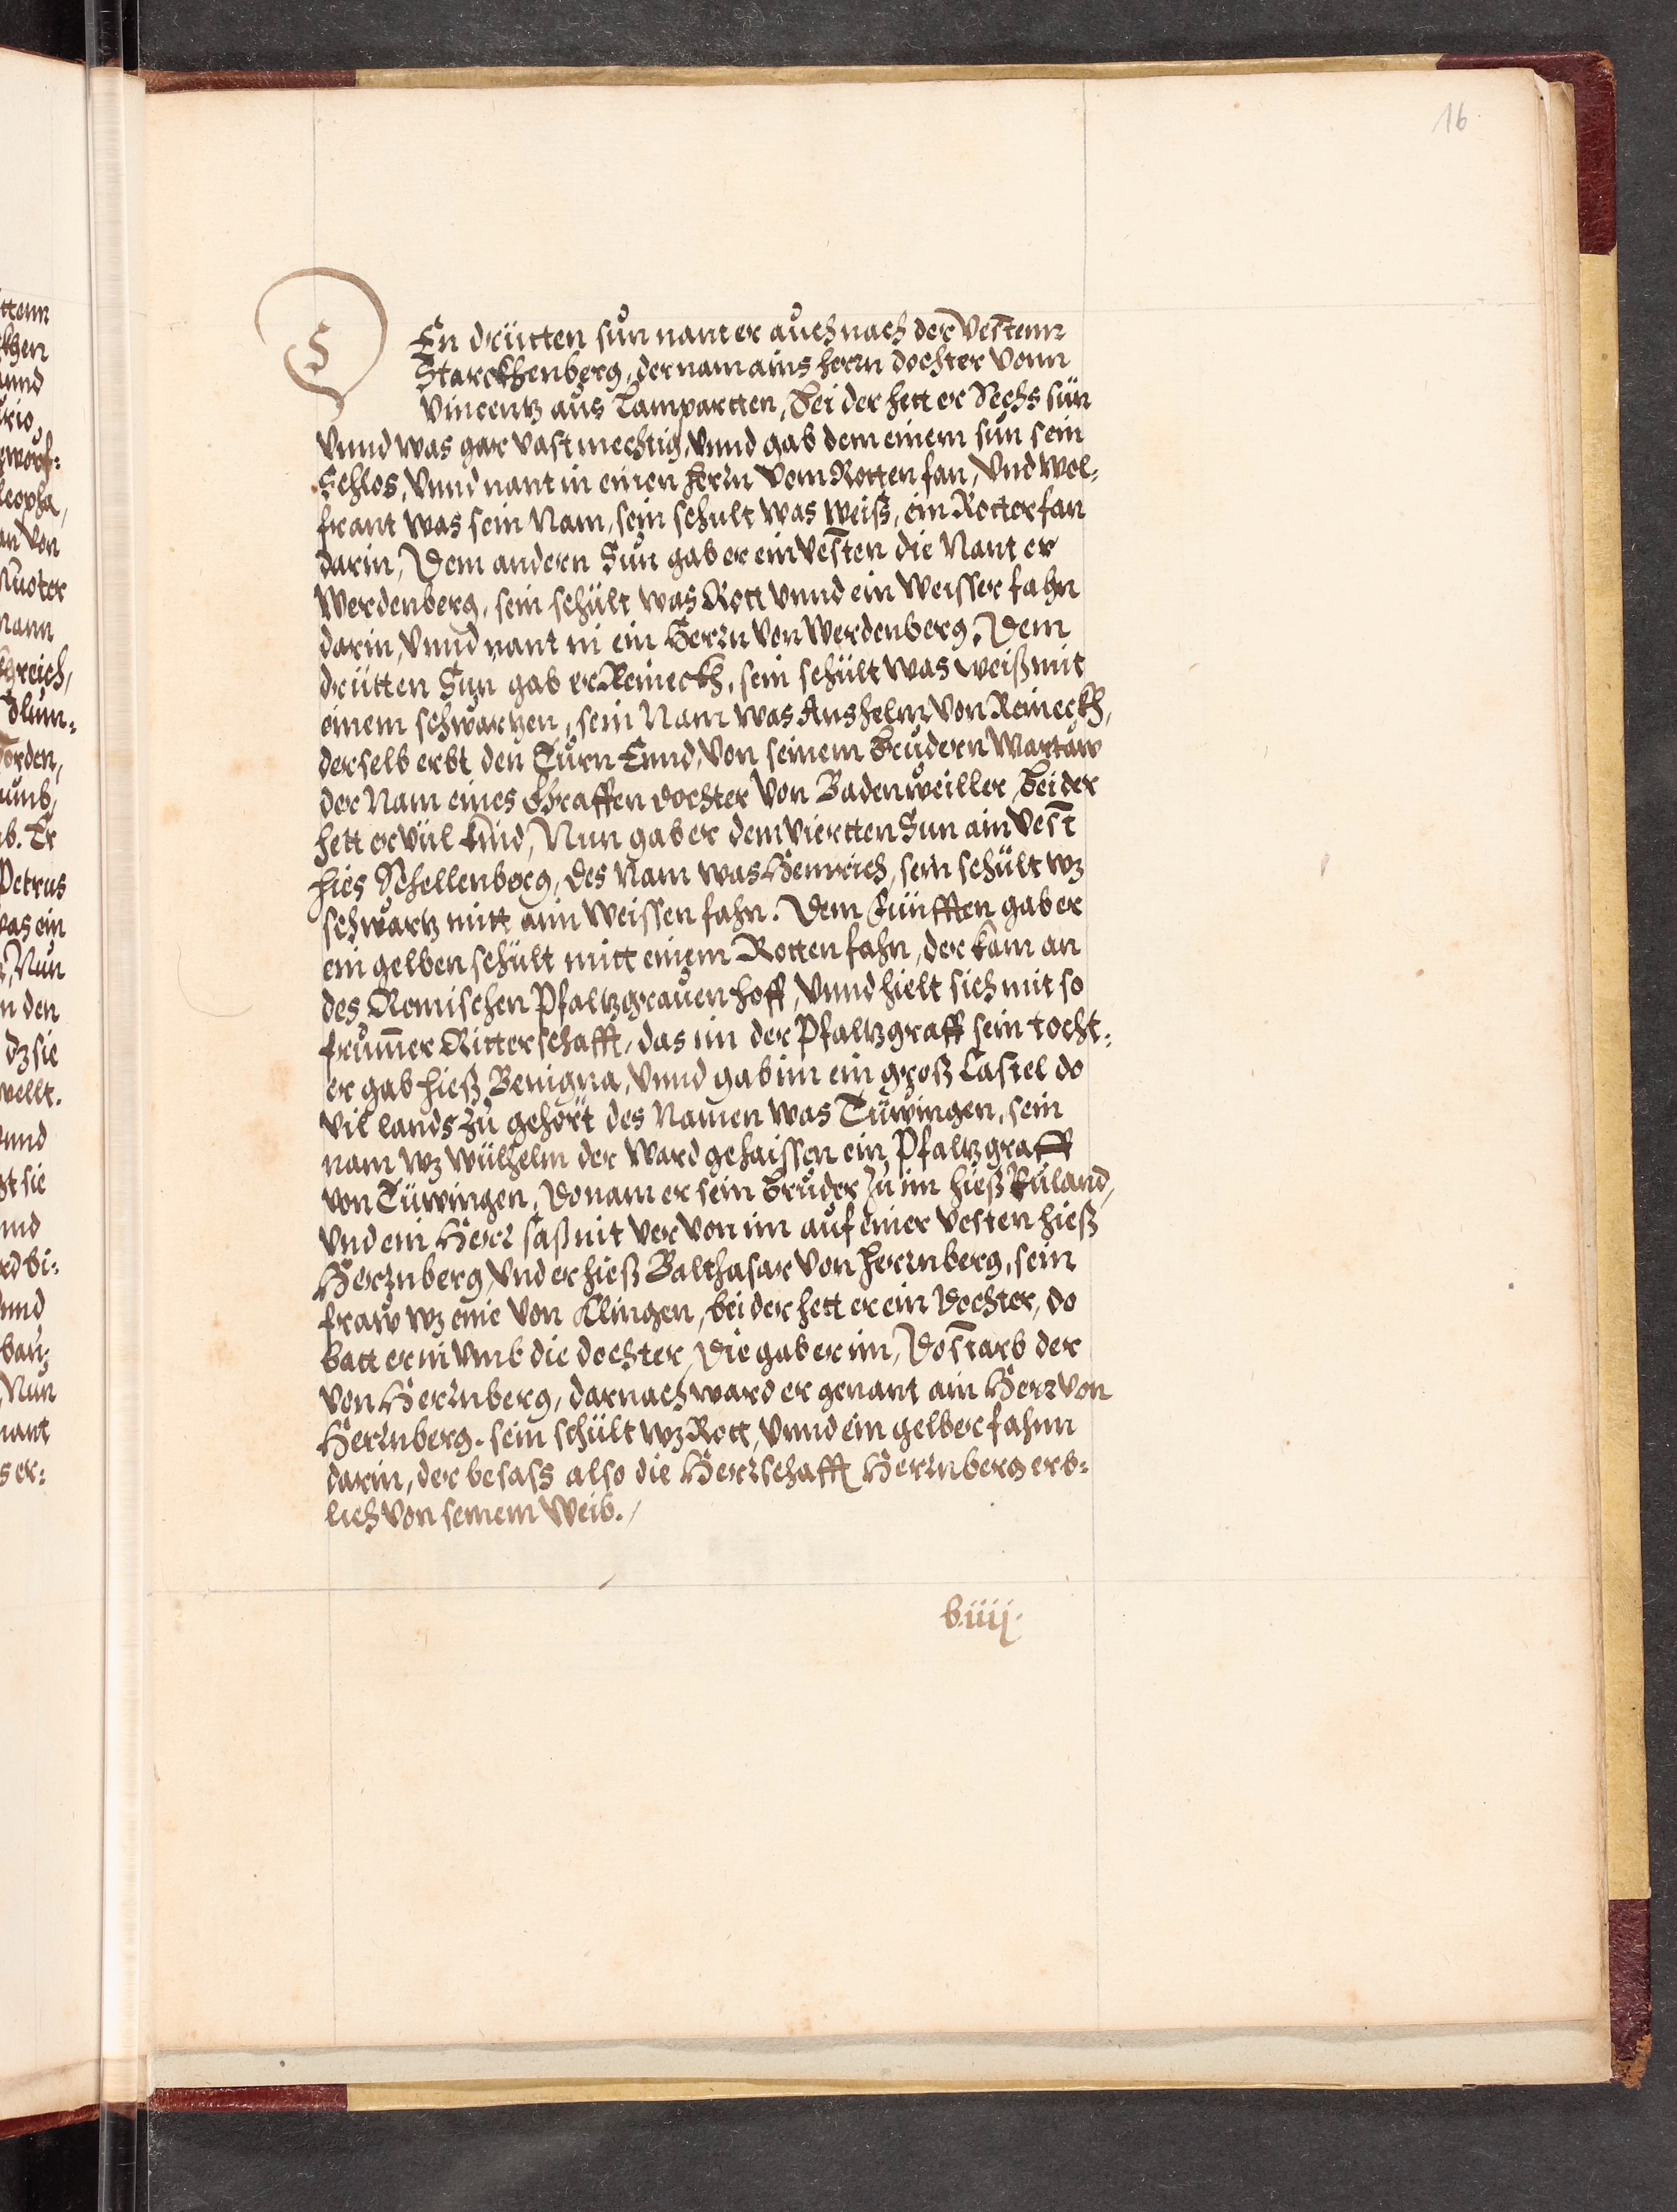 16
DEn drütten sun nant er auch nach der Vestenn
Starckhenberg, der nam ains herrn dochter Vonn
Vincentz aus Lampartten, bei der hett er Sechs sün
Vnnd was gar vast mechtig, Vnnd gab dem einem sun sein
Schlos, Vnnd nant in einen herrn Vom Rotten fan, Vnd wol-
frant was sein Nam, sein schult was weiß, ein Rotter fan
darin, Dem andern Sun gab er ein Vesten die Nant er
Werdenberg, sein schült was Rott Vnnd ein Weisser fahn
darin, Vnnd nant in ein Herrn Von Werdenberg. Dem
drütten Sun gab er Reineckh, sein schült was weiß mit
einem schwartzen, sein Nam was Anshelm Von Reineckh,
derselb erbt den Turn Ennd, Von seinem brudern Wartaw
der Nam eines Graffen dochter Von Badenweiller, bei der
hett er vil kind, Nun gab er dem viertten Sun ain Vest
hies Schellenberg, des Nam was Heinrich, sein schült wz
schwartz mitt ain Weissen fahn. Dem Fünfften gab er
ein gelben schült mitt einem Rotten fahn, der kam an
des Romischen Pfaltzgrauen hoff, Vnnd hielt sich mit so
frum̄er Ritterschafft, das im der Pfaltzgraff sein tocht-
er gab hieß Benigna, Vnnd gab im ein groß Castel do
vil lands zu gehört des Namen was Tüwingen, sein
nam wz wülhelm der Ward gehaissen ein Pfaltzgraff
von Tüwingen. Do nam er sein bruder zu im hieß Ruland,
Vnd ein Herr saß nit ver von im auf einer Vesten hieß
Herrnberg, Vnd er hieß Balthasar Von herrnberg, sein
fraw wz eine Von Klingen, bei der hett er ein Dochter, do
batt er in Vmb die dochter, Die gab er im, Do starb der
Von Herrnberg, darnach ward er genant ain Herr Von
Herrnberg. sein schült wz Rott, Vnnd ein gelber fahnn
darin, der besass also die Herrschafft Herrnberg erb-
lich Von seinem Weib.
b iiij.